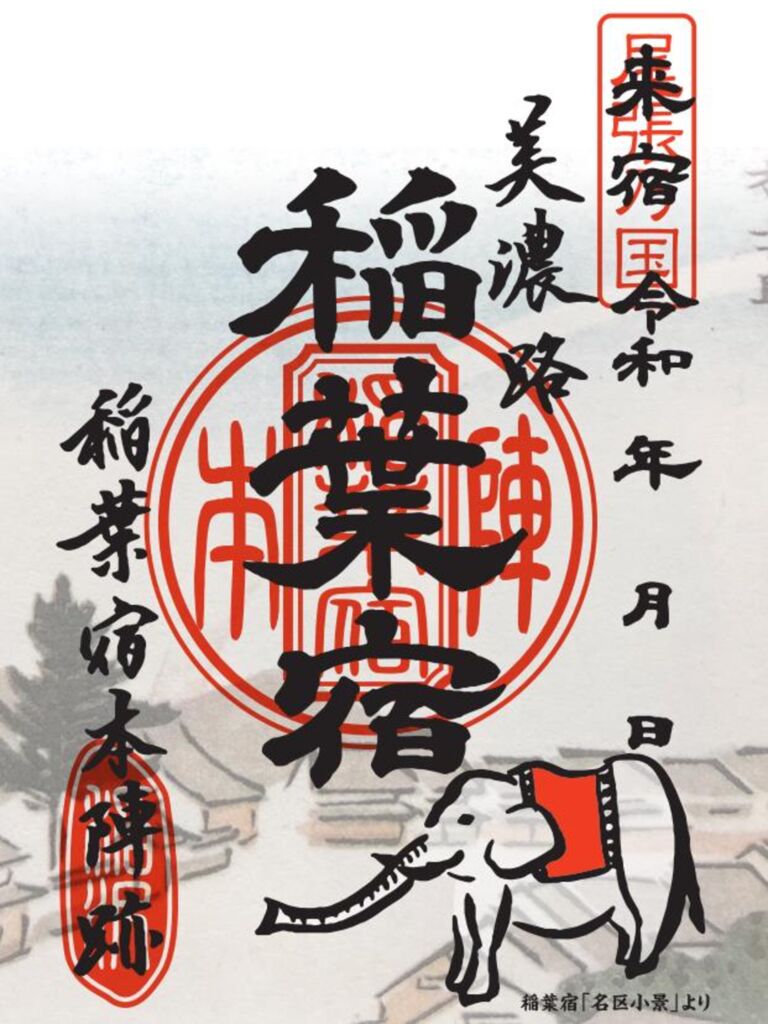 来宿 令和 年 月 日
尾張乃国
美濃路
稲葉宿
本陣
稲葉宿
稲葉宿本陣跡
稲葉宿「名区小景」より